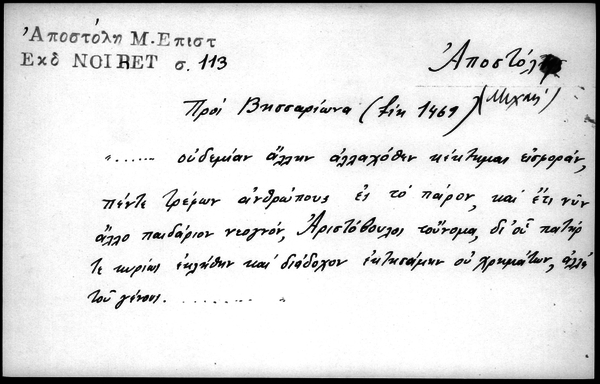 Ἀποστόλη Μ. Επιστ
Εκδ NOIRET σ. 113
Ἀποστόλη
(Μιχαή)
Πρὸς Βησσαρίωνα (1469)
"....... οὐδεμίαν ἄλλην ἀλλαχόθεν κέκτημαι εἰσφοράν,
πέντε τρέφων ἀνθρώπους ἐς τὸ παρὸν, καὶ ἔτι νῦν
ἄλλο παιδάριον νεογνόν, Ἀριστόβουλος τοὔνομα, δι' οὗ πατήρ
τε κυρίως ἐκλήθην καὶ διάδοχον ἐκτησάμην οὐ χρημάτων, ἀλλὰ
τοῦ γένους. . . . . . . . "